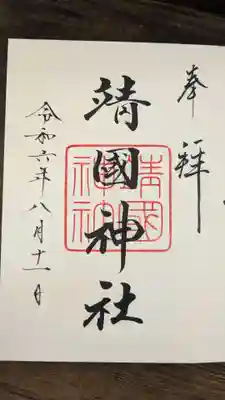 奉拜
靖國神社
靖國神社
令和六年八月十一日